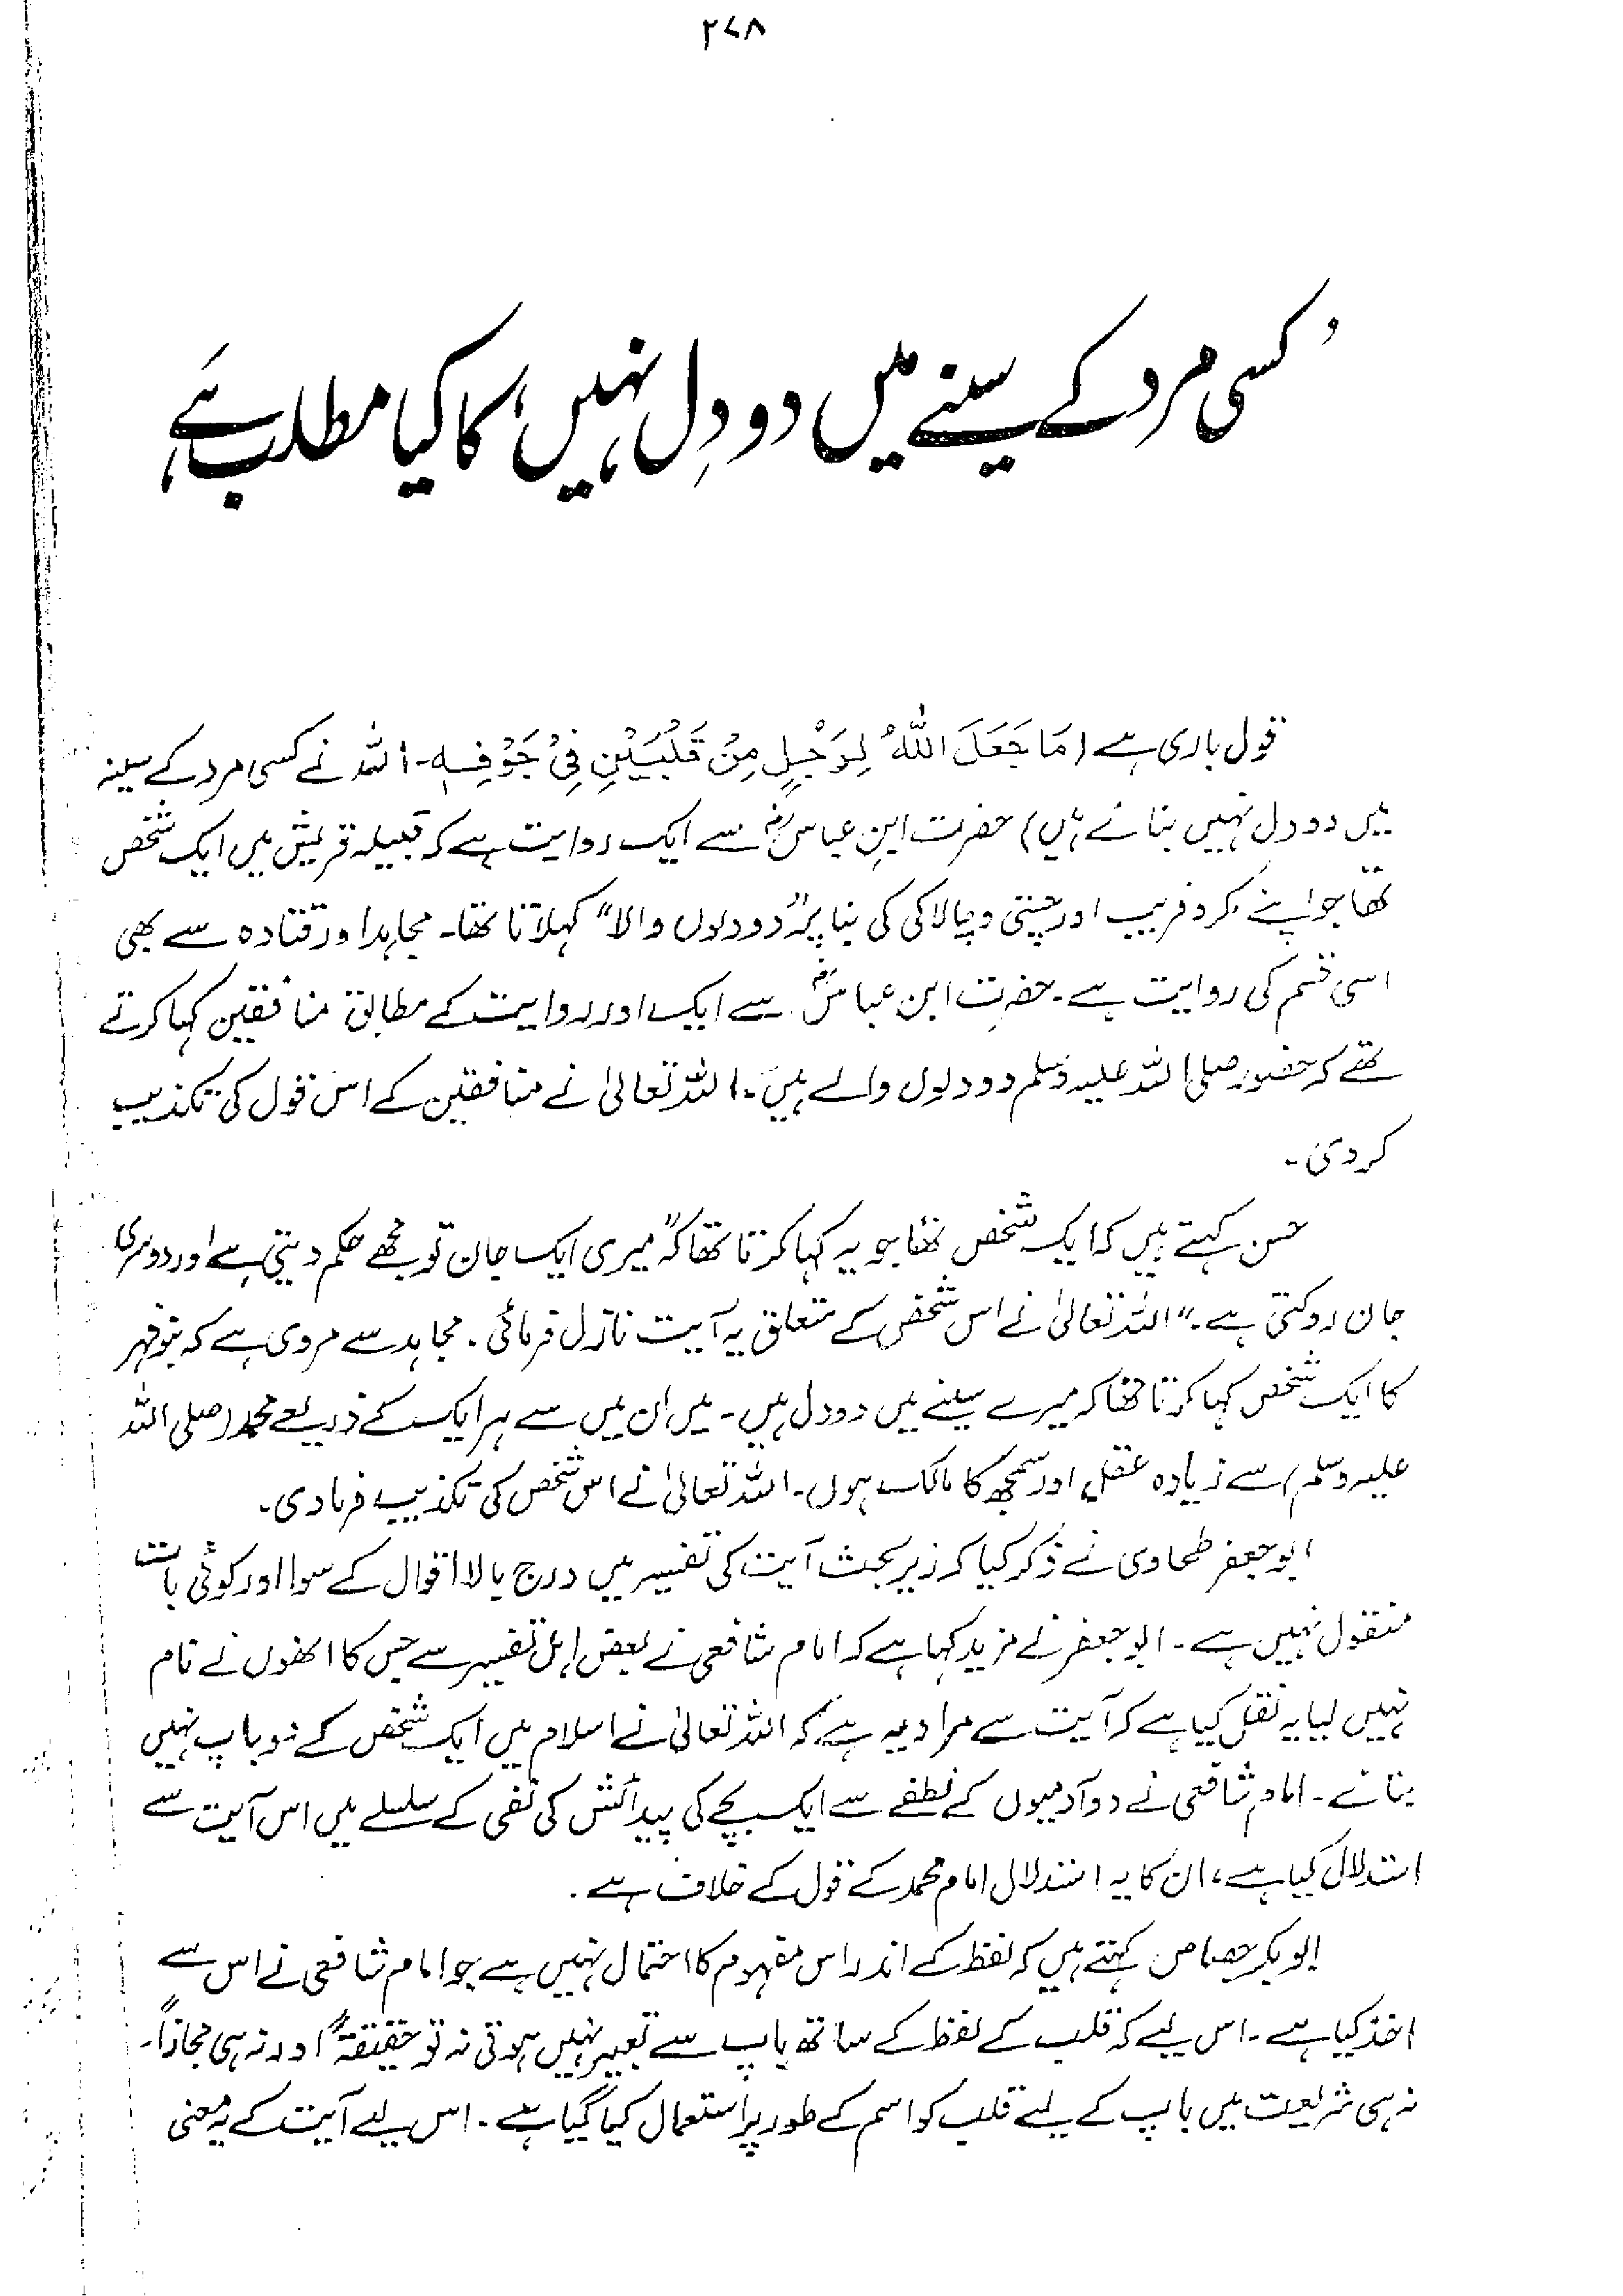 ۲۷۸
'کسی مرد کے سینے میں دو دِل نہیں' کا کیا مطلب ہے
قول باری ہے (مَا جَعَلَ اللّٰهُ لِرَجُلٍ مِنْ قَلْبَيْنِ فِيْ جَوْفِهٖ۔ اللہ نے کسی مرد کے سینہ
میں دو دل نہیں بنائے ہیں) حضرت ابنِ عباسؓ سے ایک روایت ہے کہ قبیلہ قریش میں ایک شخص
تھا جو اپنے مکر و فریب اور چستی و چالاکی کی بنا پر "دو دلوں والا" کہلاتا تھا۔ مجاہد اور قتادہ سے بھی
اسی قسم کی روایت ہے۔ حضرت ابن عباسؓ سے ایک اور روایت کے مطابق منافقین کہا کرتے
تھے کہ حضور صلی اللہ علیہ وسلم دو دلوں والے ہیں۔ اللہ تعالیٰ نے منافقین کے اس قول کی تکذیب
کر دی۔
حسن کہتے ہیں کہ ایک شخص تھا جو یہ کہا کرتا تھا کہ "میری ایک جان تو مجھے حکم دیتی ہے اور دوسری
جان روکتی ہے۔" اللہ تعالیٰ نے اس شخص کے متعلق یہ آیت نازل فرمائی۔ مجاہد سے مروی ہے کہ بنو فہر
کا ایک شخص کہا کرتا تھا کہ میرے سینے میں دو دل ہیں۔ میں ان میں سے ہر ایک کے ذریعے محمد (صلی اللہ
علیہ وسلم) سے زیادہ عقل اور سمجھ کا مالک ہوں۔ اللہ تعالیٰ نے اس شخص کی تکذیب فرما دی۔
ابو جعفر طحاوی نے ذکر کیا کہ زیر بحث آیت کی تفسیر میں درج بالا اقوال کے سوا اور کوئی بات
منقول نہیں ہے۔ ابو جعفر نے مزید کہا ہے کہ امام شافعی نے بعض اہل تفسیر سے جس کا انھوں نے نام
نہیں لیا یہ نقل کیا ہے کہ آیت سے مراد یہ ہے کہ اللہ تعالیٰ نے اسلام میں ایک شخص کے دو باپ نہیں
بنائے۔ امام شافعی نے دو آدمیوں کے نطفے سے ایک بچے کی پیدائش کی نفی کے سلسلے میں اس آیت سے
استدلال کیا ہے، ان کا یہ استدلال امام محمد کے قول کے خلاف ہے۔
ابو بکر جصاص کہتے ہیں کہ لفظ کے اندر اس مفہوم کا احتمال نہیں ہے جو امام شافعی نے اس سے
اخذ کیا ہے۔ اس لیے کہ قلب کے لفظ کے ساتھ باپ سے تعبیر نہیں ہوتی نہ تو حقیقۃً اور نہ ہی مجازاً۔
نہ ہی شریعت میں باپ کے لیے قلب کو اسم کے طور پر استعمال کیا گیا ہے۔ اس لیے آیت کے یہ معنی